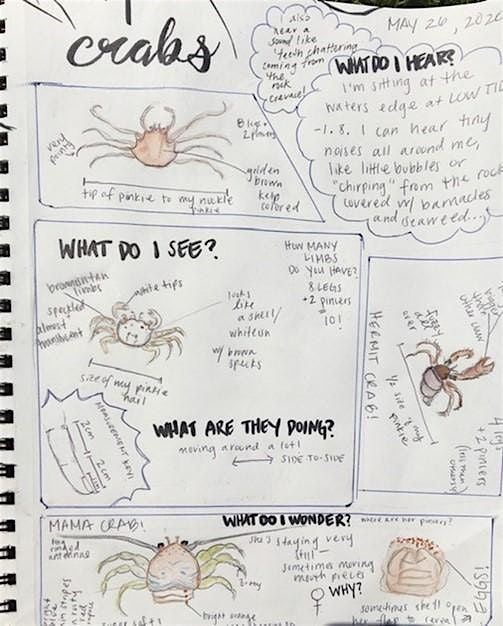 crabs
MAY 26, 2020
I also
hear a
sound like
teeth chattering
coming from
the
rock
crevace!
WHAT DO I HEAR?
I'm sitting at the
waters edge at LOW TIDE
-1.8. I can hear tiny
noises all around me,
like little bubbles or
"chirping" from the rock
covered w/ barnacles
and seaweed...
very
pointy
8 legs
2 pincers
golden
brown
kelp
colored
tip of pinkie to my nuckle
pinkie
WHAT DO I SEE?
HOW MANY
LIMBS
DO YOU HAVE?
8 LEGS
+2 pincers
=
10!
brownish tan
limbs
white tips
speckled
almost
translucent
looks
like
a shell/
whiteish
w/ brown
specks
size of my pinkie
nail
MEASUREMENT KEY!
2cm
2cm
WHAT ARE THEY DOING?
moving around a lot!
SIDE-TO-SIDE
HERMIT CRAB!
1/2 size of my
pinkie
4 legs
+ 2 pincers
MAMA CRAB!
WHAT DO I WONDER?
where are her pincers?
antennas
she's staying very
still—
sometimes moving
mouth pieces
WHY?
EGGS!
bright orange
sometimes she'll open
her flap to reveal